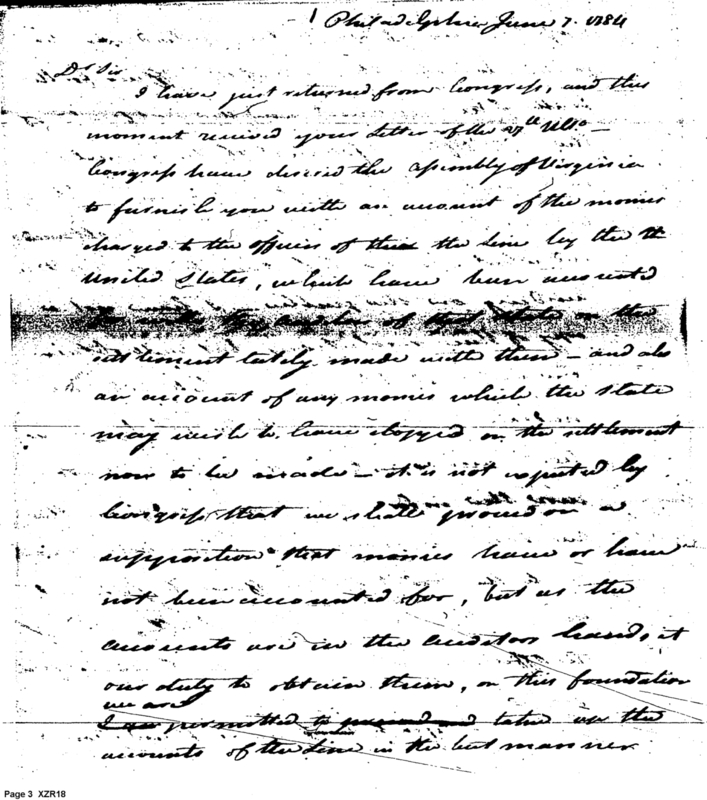 Philadelphia June 7. 1784
Dr Sir
I have just returned from Congress, and this
moment received your Letter of the 27th Ulto –
Congress have desired the assembly of Virginia
to furnish you with an account of the monies
charged to the officers of the the Line by the
United States, which have been accounted
for of that State on the
settlement lately made with them – and also
an account of any monies which the State
may wish to have stopped on the settlement
now to be made – it is not expected by
Congress that we shall proceed on a
supposition that monies have or have
not been accounted for, but as the
accounts are in the auditors hands, it
our duty to obtain them, on this foundation
we are
I permitted to take up the
accounts of the Line in the best manner
Page 3 XZR18